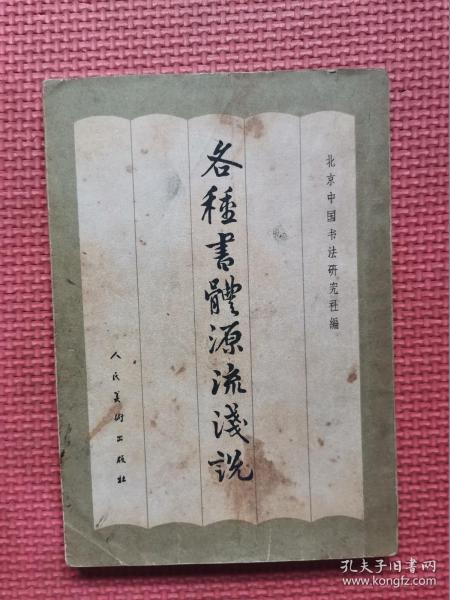 北京中国书法研究社编
各種書體源流淺說
人民美術出版社
孔夫子旧书网
www.kongfz.com